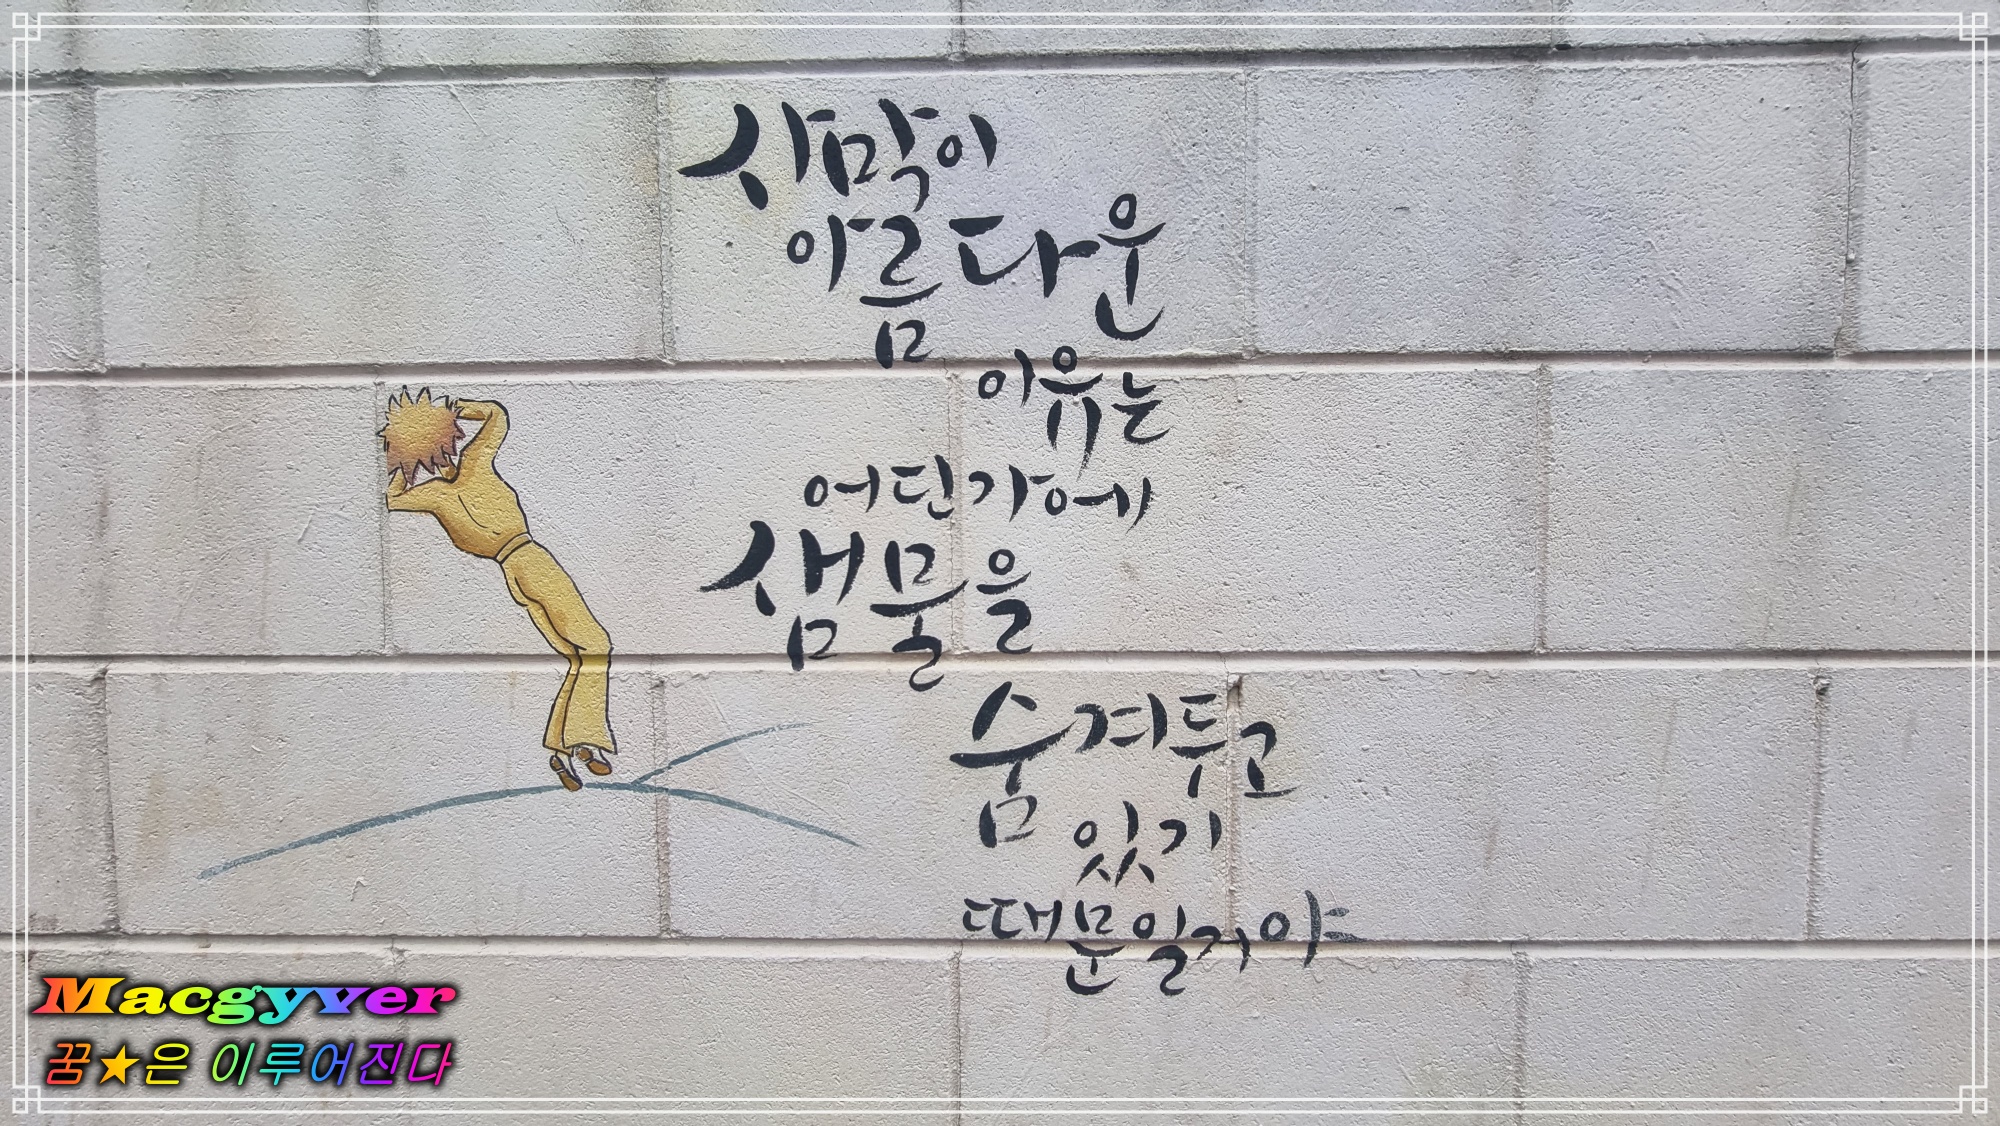 사막이
아름다운
이유는
어딘가에
샘물을
숨겨두고
있기
때문일거야
Macgyver
꿈★은 이루어진다